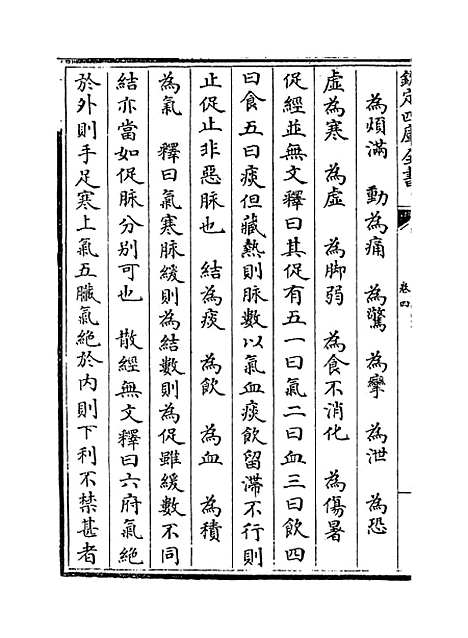 欽定四庫全書
卷四
為煩滿　動為痛　為驚　為攣　為泄　為恐
虛為寒　為虛　為脚弱　為食不消化　為傷暑
促經並無文釋曰其促有五一曰氣二曰血三曰飲四
曰食五曰痰但藏熱則脉數以氣血痰飲留滯不行則
止促止非惡脉也　結為痰　為飲　為血　為積
為氣　釋曰氣寒脉緩則為結數則為促雖緩數不同
結亦當如促脉分別可也　散經無文釋曰六府氣絶
於外則手足寒上氣五臟氣絶於内則下利不禁甚者